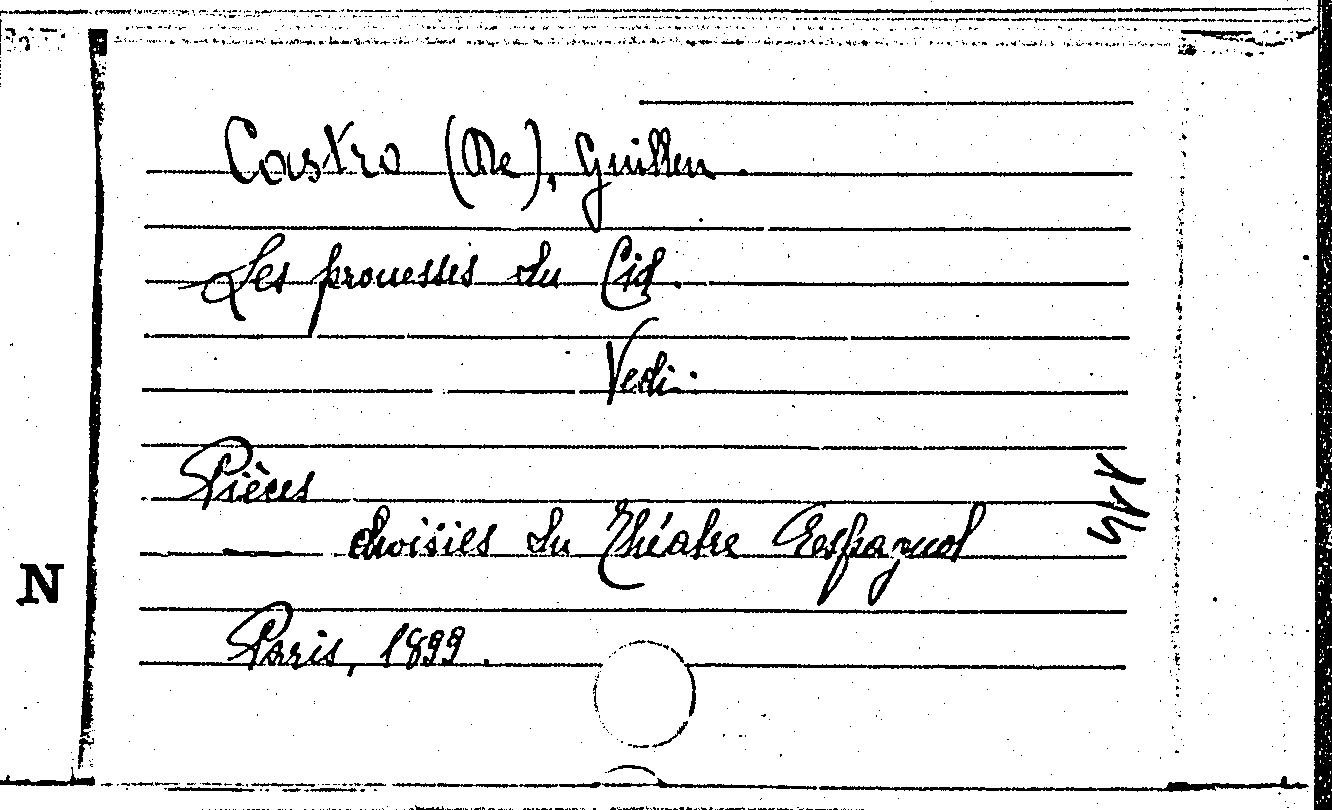 Castro (De), Guillen.
Les prouesses du Cid.
Vedi:
Pièces
choisies du Théatre Espagnol
N
Paris, 1899.